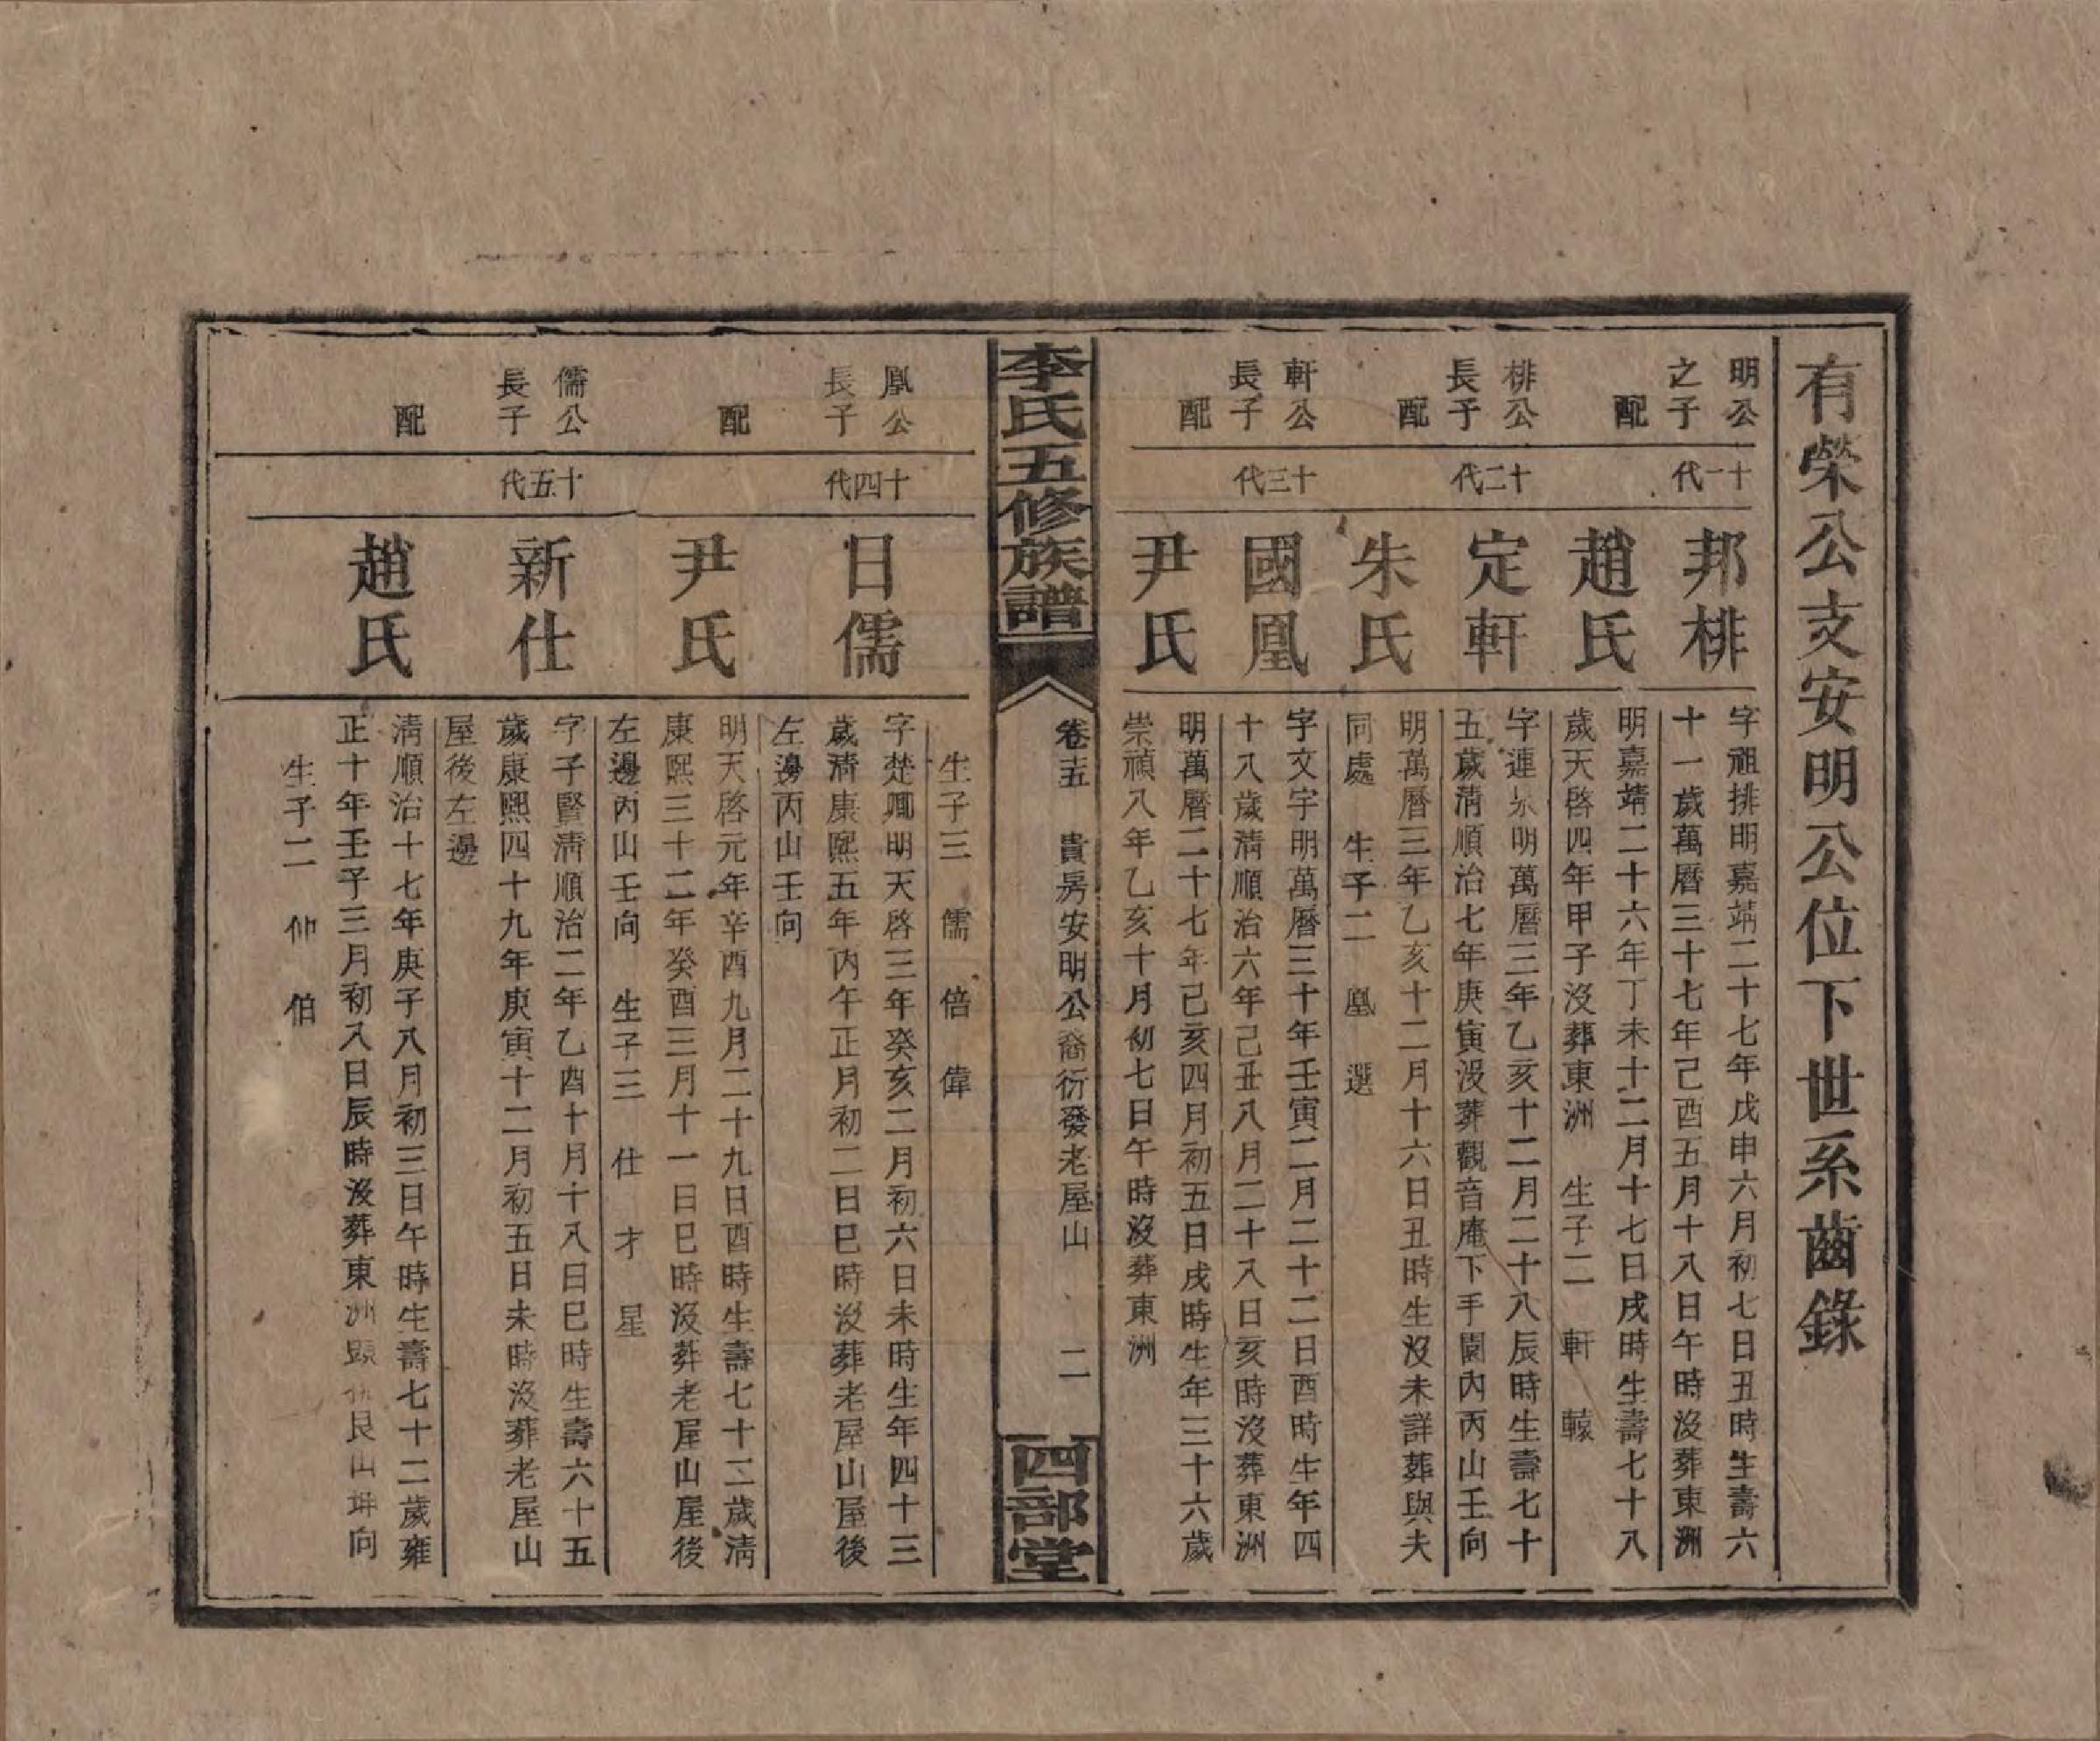 有榮公支安明公位下世系齒錄
明公
之子
十一代
邦桃
字祖排明嘉靖二十七年戊申六月初七日丑時生壽六
十一歲萬曆三十七年己酉五月十八日午時沒葬東洲
配
趙氏
明嘉靖二十六年丁未十二月十七日戌時生壽七十八
歲天啓四年甲子沒葬東洲　生子二　軒　轅
桃公
長子
十二代
定軒
字連明萬曆三年乙亥十二月二十八辰時生壽七十
五歲清順治七年庚寅沒葬觀音庵下手園內丙山壬向
配
朱氏
明萬曆三年乙亥十二月十六日丑時生沒未詳葬與夫
同處　生子二　凰　選
軒公
長子
十三代
國凰
字文字明萬曆三十年壬寅二月二十二日酉時生年四
十八歲清順治六年己丑八月二十八日亥時沒葬東洲
配
尹氏
明萬曆二十七年己亥四月初五日戌時生年三十六歲
崇禎八年乙亥十月初七日午時沒葬東洲
李氏五修族譜
卷十五　貴房安明公裔衍發老屋山　二
四部堂
生子三　儒　倍　偉
凰公
長子
十四代
日儒
字楚卿明天啓三年癸亥二月初六日未時生年四十三
歲清康熙五年丙午正月初二日巳時沒葬老屋山屋後
左邊丙山壬向
配
尹氏
明天啓元年辛酉九月二十九日酉時生壽七十二歲清
康熙三十二年癸酉三月十一日巳時沒葬老屋山屋後
左邊丙山壬向　生子三　仕　才　星
儒公
長子
十五代
新仕
字子賢清順治二年乙酉十月十八日巳時生壽六十五
歲康熙四十九年庚寅十二月初五日未時沒葬老屋山
屋後左邊
配
趙氏
清順治十七年庚子八月初三日午時生壽七十二歲雍
正十年壬子三月初八日辰時沒葬東洲艮山坤向
生子二　仲　伯